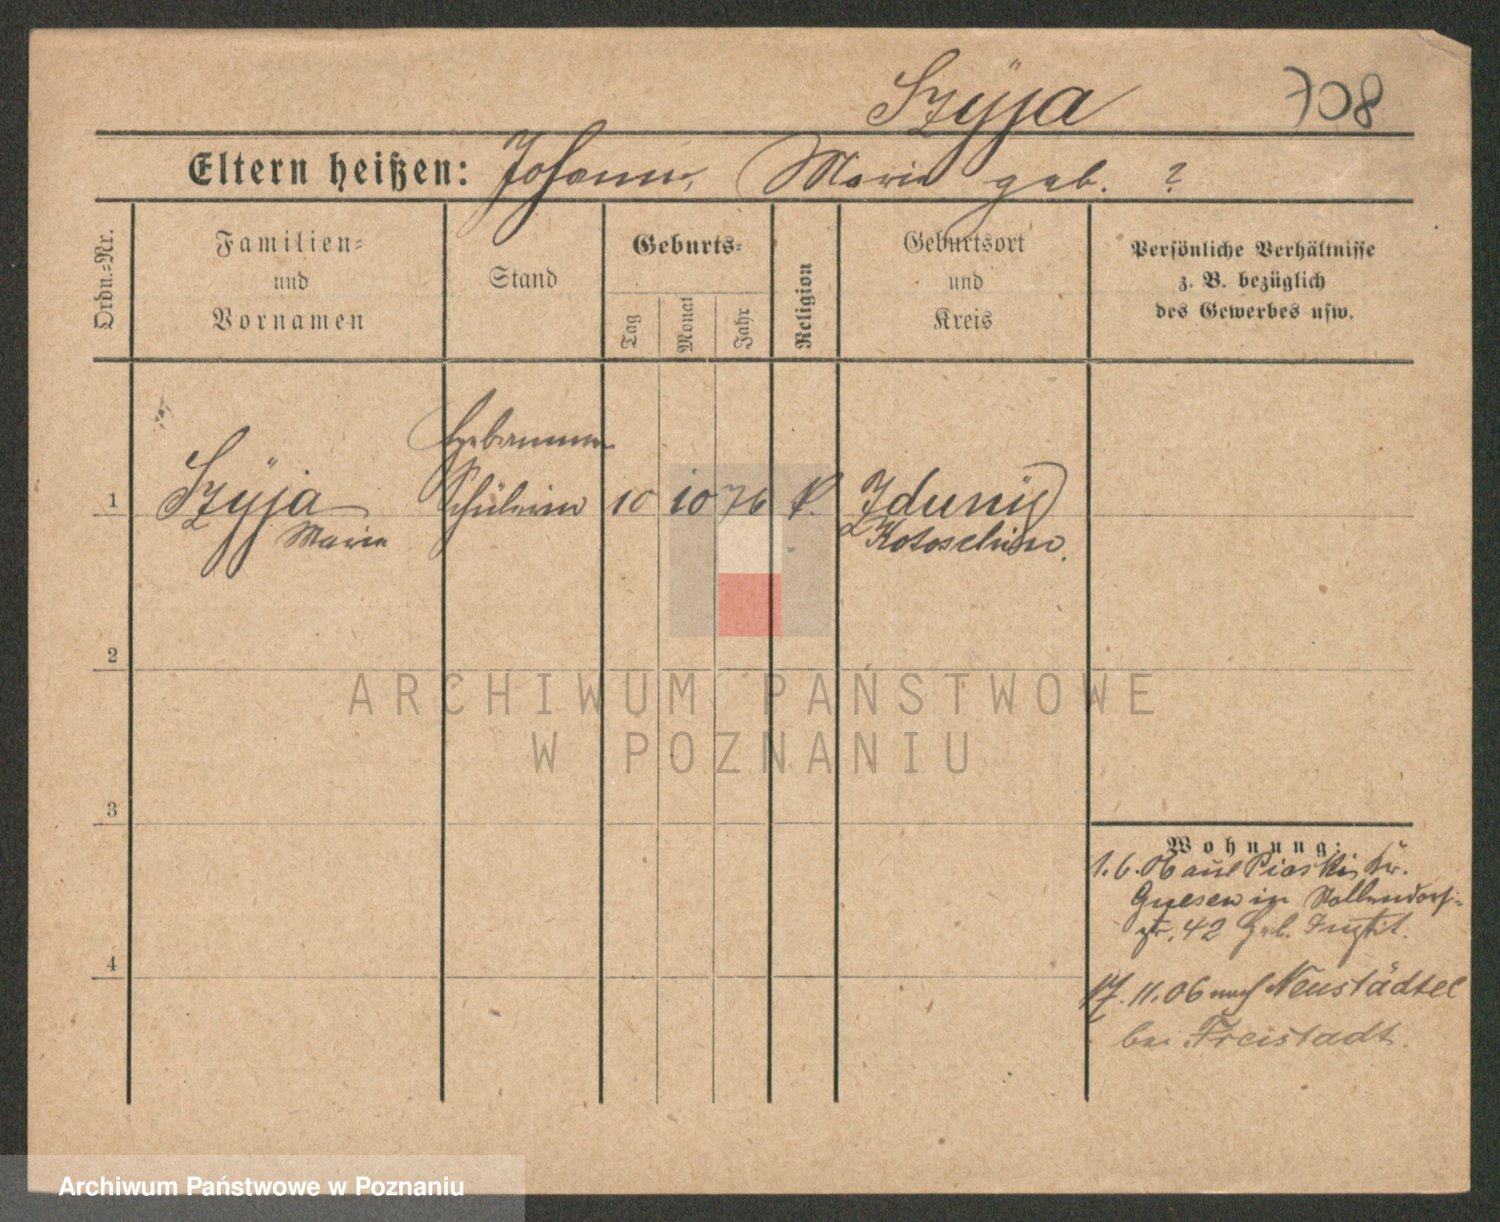 Szÿja 708
Eltern heißen: Johann, Marie geb. ?
Ordn.=Nr.
Familien=
und
Vornamen
Stand
Geburts=
Tag
Monat
Jahr
Religion
Geburtsort
und
Kreis
Persönliche Verhältnisse
z. B. bezüglich
des Gewerbes usw.
Hebammen
1 Szÿja Schülerin 10 10 76 k. Zduny
Marie Kotoschin.
2
ARCHIWUM PAŃSTWOWE
W POZNANIU
3
Wohnung:
1.6.06 aus Piaski, Kr.
Gnesen in Nollendorf=
str. 42 Heb. Instit.
4
17. 11. 06 nach Neustädtel
bei Freistadt.
Archiwum Państwowe w Poznaniu